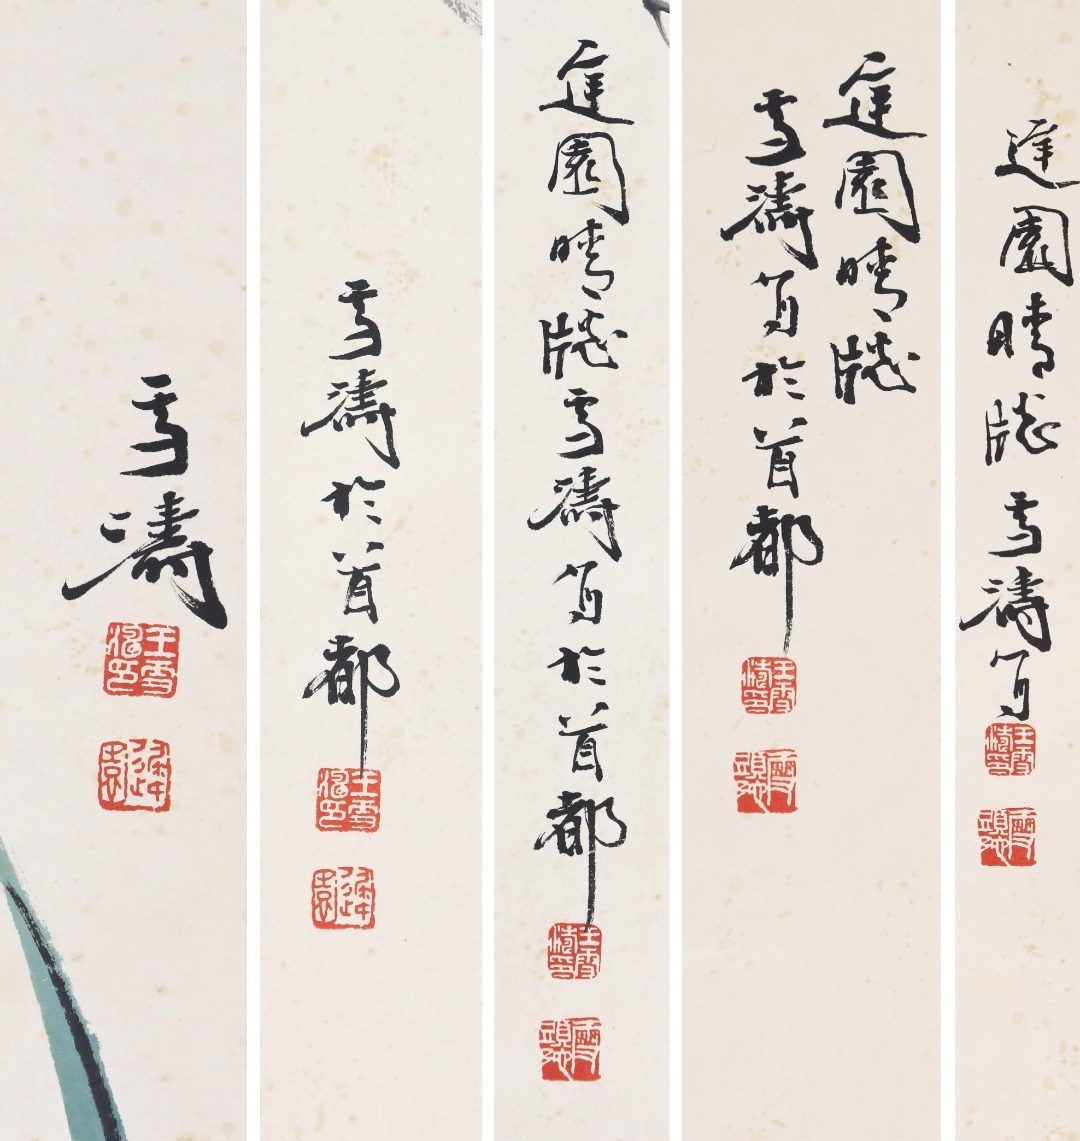 雪濤
王雪濤印
遲園
雪濤於首都
王雪濤印
遲園
遲園晴牕雪濤寫於首都
王雪濤印
遲園晴牕
雪濤寫於首都
王雪濤印
遲園晴牕雪濤寫
王雪濤印